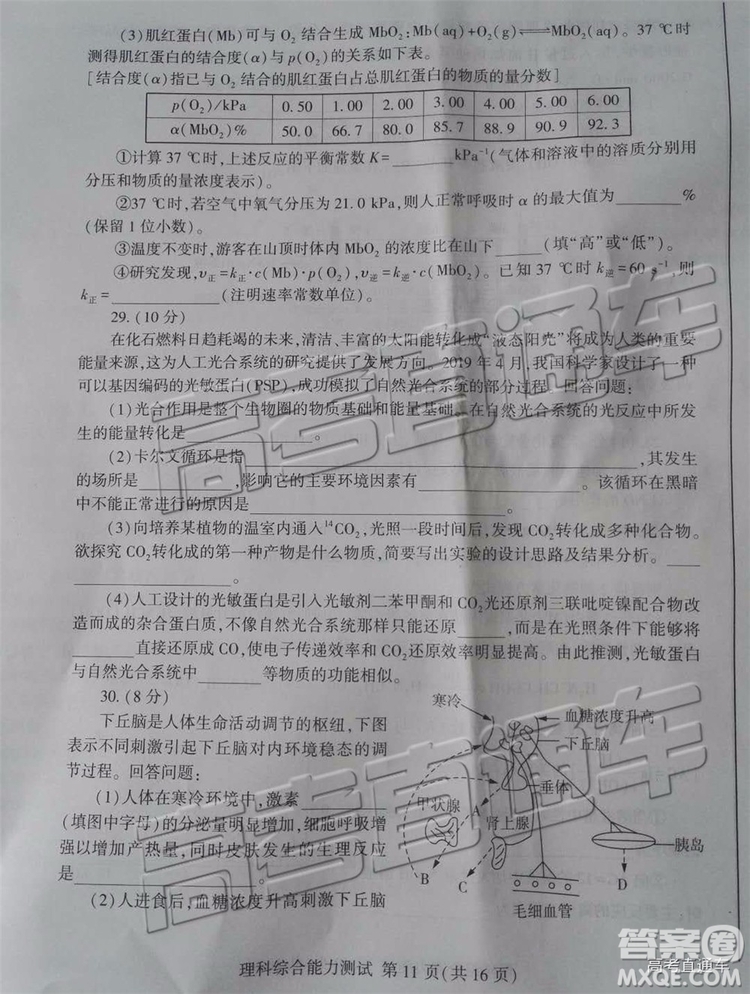 (3)肌红蛋白(Mb)可与 O₂ 结合生成 MbO₂:Mb(aq)+O₂(g)⇌MbO₂(aq)。37 ℃时
测得肌红蛋白的结合度(α)与 p(O₂)的关系如下表。
[结合度(α)指已与 O₂ 结合的肌红蛋白占总肌红蛋白的物质的量分数]
p(O₂)/kPa 0.50 1.00 2.00 3.00 4.00 5.00 6.00
α(MbO₂)% 50.0 66.7 80.0 85.7 88.9 90.9 92.3
①计算 37 ℃时,上述反应的平衡常数 K=________kPa⁻¹(气体和溶液中的溶质分别用
分压和物质的量浓度表示)。
②37 ℃时,若空气中氧气分压为 21.0 kPa,则人正常呼吸时 α 的最大值为________%
(保留 1 位小数)。
③温度不变时,游客在山顶时体内 MbO₂ 的浓度比在山下______(填“高”或“低”)。
④研究发现,v正=k正·c(Mb)·p(O₂),v逆=k逆·c(MbO₂)。已知 37 ℃时 k逆=60 s⁻¹,则
k正=__________(注明速率常数单位)。
29. (10 分)
在化石燃料日趋耗竭的未来,清洁、丰富的太阳能转化成“液态阳光”将成为人类的重要
能量来源,这为人工光合系统的研究提供了发展方向。2019 年 4 月,我国科学家设计了一种
可以基因编码的光敏蛋白(PSP),成功模拟了自然光合系统的部分过程。回答问题:
(1)光合作用是整个生物圈的物质基础和能量基础。在自然光合系统的光反应中所发
生的能量转化是____________。
(2)卡尔文循环是指____________________,其发生
的场所是________,影响它的主要环境因素有____________。该循环在黑暗
中不能正常进行的原因是____________________。
(3)向培养某植物的温室内通入¹⁴CO₂,光照一段时间后,发现 CO₂转化成多种化合物。
欲探究 CO₂转化成的第一种产物是什么物质,简要写出实验的设计思路及结果分析。____
____________。
(4)人工设计的光敏蛋白是引入光敏剂二苯甲酮和 CO₂光还原剂三联吡啶镍配合物改
造而成的杂合蛋白质,不像自然光合系统那样只能还原______,而是在光照条件下能够将
________直接还原成 CO,使电子传递效率和 CO₂还原效率明显提高。由此推测,光敏蛋白
与自然光合系统中______等物质的功能相似。
30. (8 分)
下丘脑是人体生命活动调节的枢纽,下图
表示不同刺激引起下丘脑对内环境稳态的调
节过程。回答问题:
(1)人体在寒冷环境中,激素________
(填图中字母)的分泌量明显增加,细胞呼吸增
强以增加产热量,同时皮肤发生的生理反应
是____________________。
(2)人进食后,血糖浓度升高刺激下丘脑
寒冷
血糖浓度升高
下丘脑
垂体
甲状腺
A
肾上腺
胰岛
B
C
D
毛细血管
理科综合能力测试 第 11 页(共 16 页)
高考直通车
高考直通车
高考直通车
答案圈
高考直通车
MXQE.COM